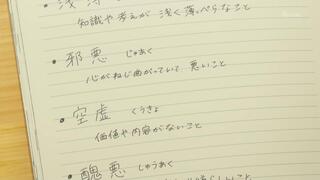 知識や考えが 浅く薄っぺらなこと
・邪悪 じゃあく
心がねじ曲がっていて 悪いこと
・空虚 くうきょ
価値や内容がないこと
・醜悪 しゅうあく